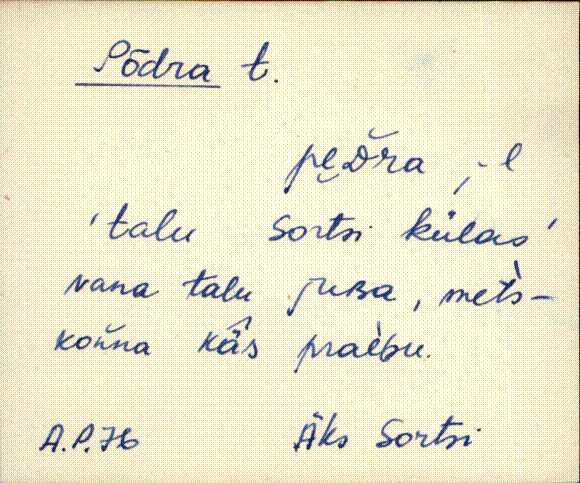 Põdra t.
pe̮ᴅ̆ra, -l
'talu Sortsi külas'
vana talu juʙa, mets̀-
kon̆na kä̂s praèɢu.
A.P.76 Äks Sortsi